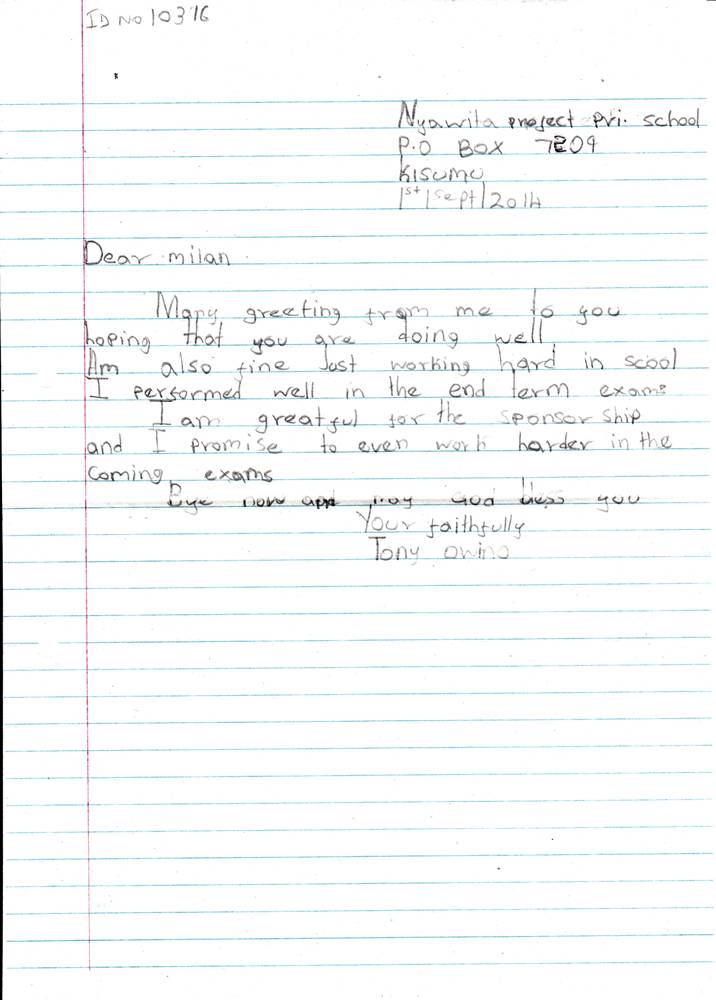 ID NO 10316
Nyawita project pri. school
P.O BOX 7209
KISUMU
1st|sept|2014
Dear milan
Many greeting from me to you
hoping that you are doing well.
Am also fine Just working hard in scool
I performed well in the end term exams
I am greatful for the sponsor ship
and I promise to even work harder in the
coming exams
Bye now and may God bless you
Your faithfully
Tony owino